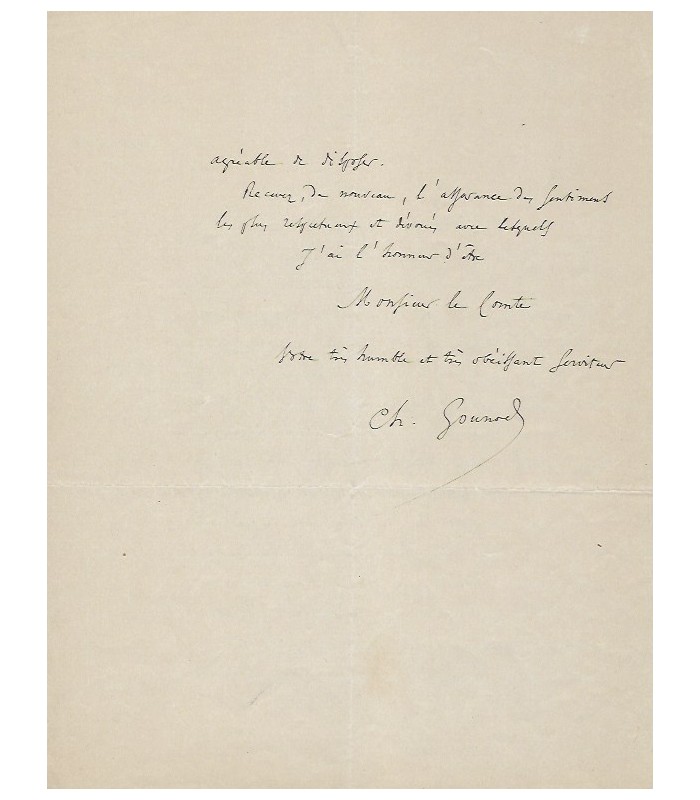 agréable de disposer.
Recevez, de nouveau, l'assurance des sentiments
les plus respectueux et dévoués avec lesquels
j'ai l'honneur d'être
Monsieur le Comte
Votre très humble et très obéissant serviteur
Ch. Gounod